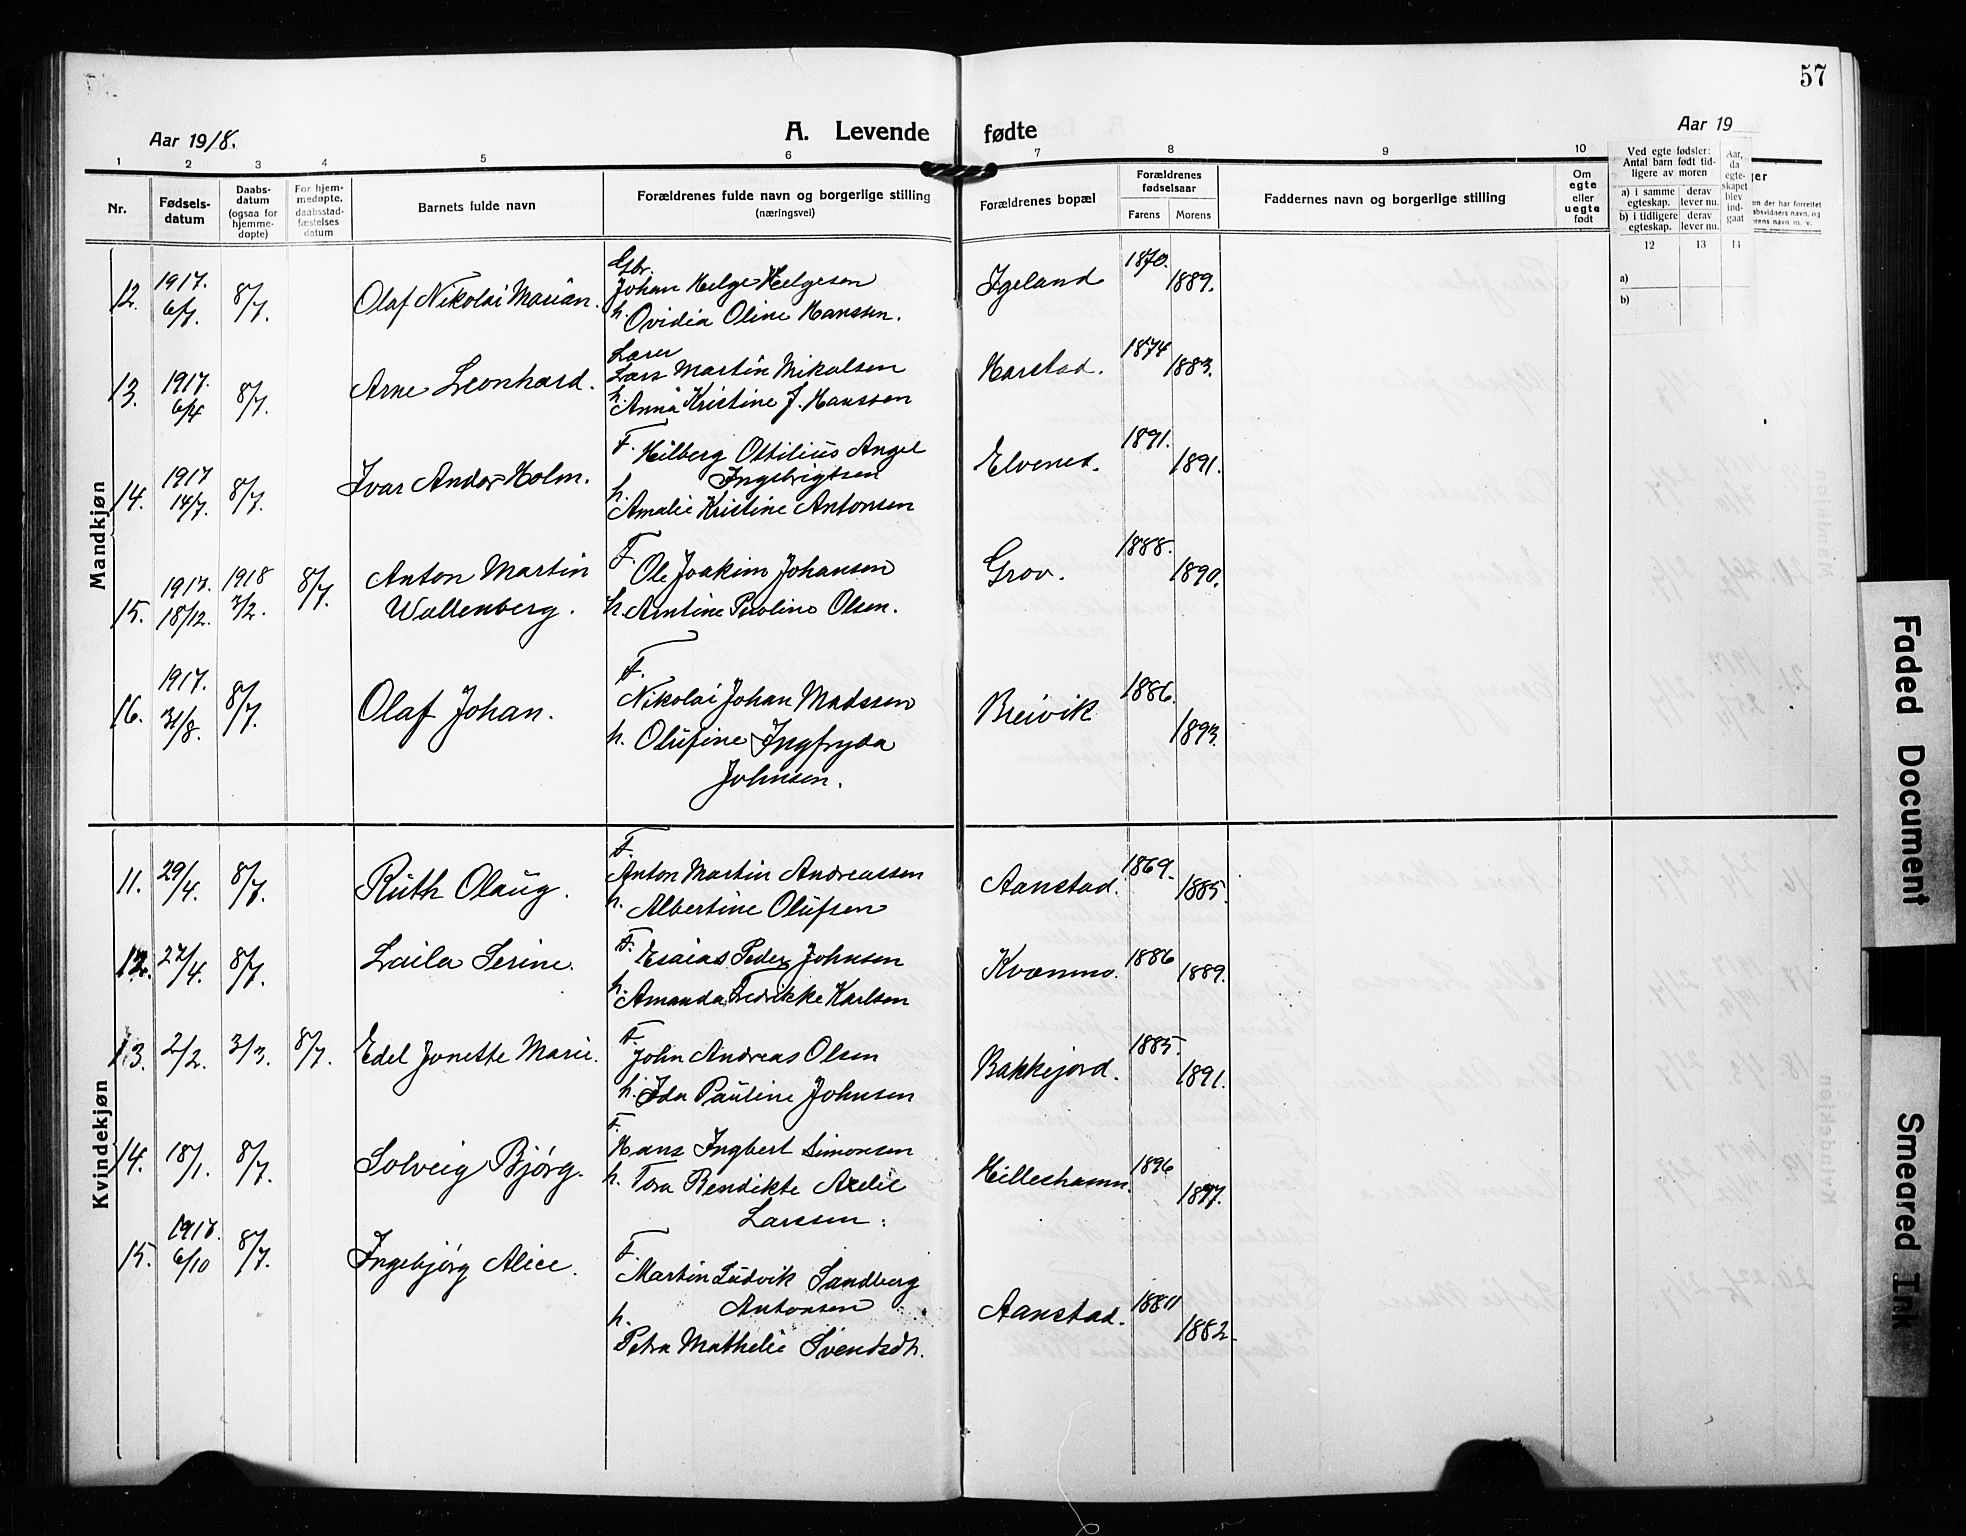 57
Aar 1918.
A. Levende fødte
Aar 19
1 2 3 4 5 6 7 8 9 10
Nr.
Fødsels-datum
Daabs-datum (ogsaa for hjemme-døpte)
For hjem-medøpte, daabsstad-fæstelses datum
Barnets fulde navn
Forældrenes fulde navn og borgerlige stilling (næringsvei)
Forældrenes bopæl
Forældrenes fødselsaar
Farens Morens
Faddernes navn og borgerlige stilling
Om egte eller uegte født
Ved egte fødsler: Antal barn født tid-ligere av moren
a) i samme egteskap. derav lever nu.
b) i tidligere egteskap. derav lever nu.
Aar, da egte-skapet blev ind-gaat
12 13 14
a)
b)
Mandkjøn
12. 1917. 6/7. 8/7. Olaf Nikolai Marian. Gbr. Johan Helge Helgesen
h. Ovidia Oline Hanssen. Igeland 1870. 1889.
13. 1917. 6/4 8/7. Arne Leonhard. Lærer Lars Martin Mikalsen
h. Anna Kristine J. Hanssen Harstad. 1874 1883.
14. 1917 14/7. 8/7. Ivar Andor Holm. F. Hilberg Ottilius Angel
Ingebrigtsen
h. Amalie Kristine Antonsen Elvenes. 1891. 1891.
15. 1917. 18/12. 1918 3/2. 8/7. Anton Martin
Wallenberg. F. Ole Joakim Johansen
h. Arntine Pauline Olsen. Grov. 1888. 1890.
16. 1917. 31/8. 8/7. Olaf Johan. F. Nikolai Johan Madssen
h. Olufine Ingfryda
Johnsen. Breivik 1886. 1893.
Kvindekjøn
11. 29/4. 8/7. Ruth Olaug. F. Anton Martin Andreassen
h. Albertine Olufsen Aanstad. 1869. 1885.
12. 27/4. 8/7. Laila Serine. F. Esaias Peder Johnsen
h. Amanda Fredrikke Karlsen Kvænmo. 1886 1889.
13. 2/2. 3/3. 8/7. Edel Jonette Marie. F. John Andreas Olsen
h. Ida Pauline Johnsen Bakkejord. 1885. 1891.
14. 18/1. 8/7. Solveig Bjørg. F. Hans Ingbert Simonsen
h. Tora Bendikte Axelie
Larssen. Hilleshamn. 1896 1897.
15. 1917. 6/10 8/7. Ingebjørg Alice. F. Martin Ludvik Sandberg
Antonsen
h. Petra Mathelie Svendsdt. Aanstad. 1881 1882.
Faded Document
Smeared Ink